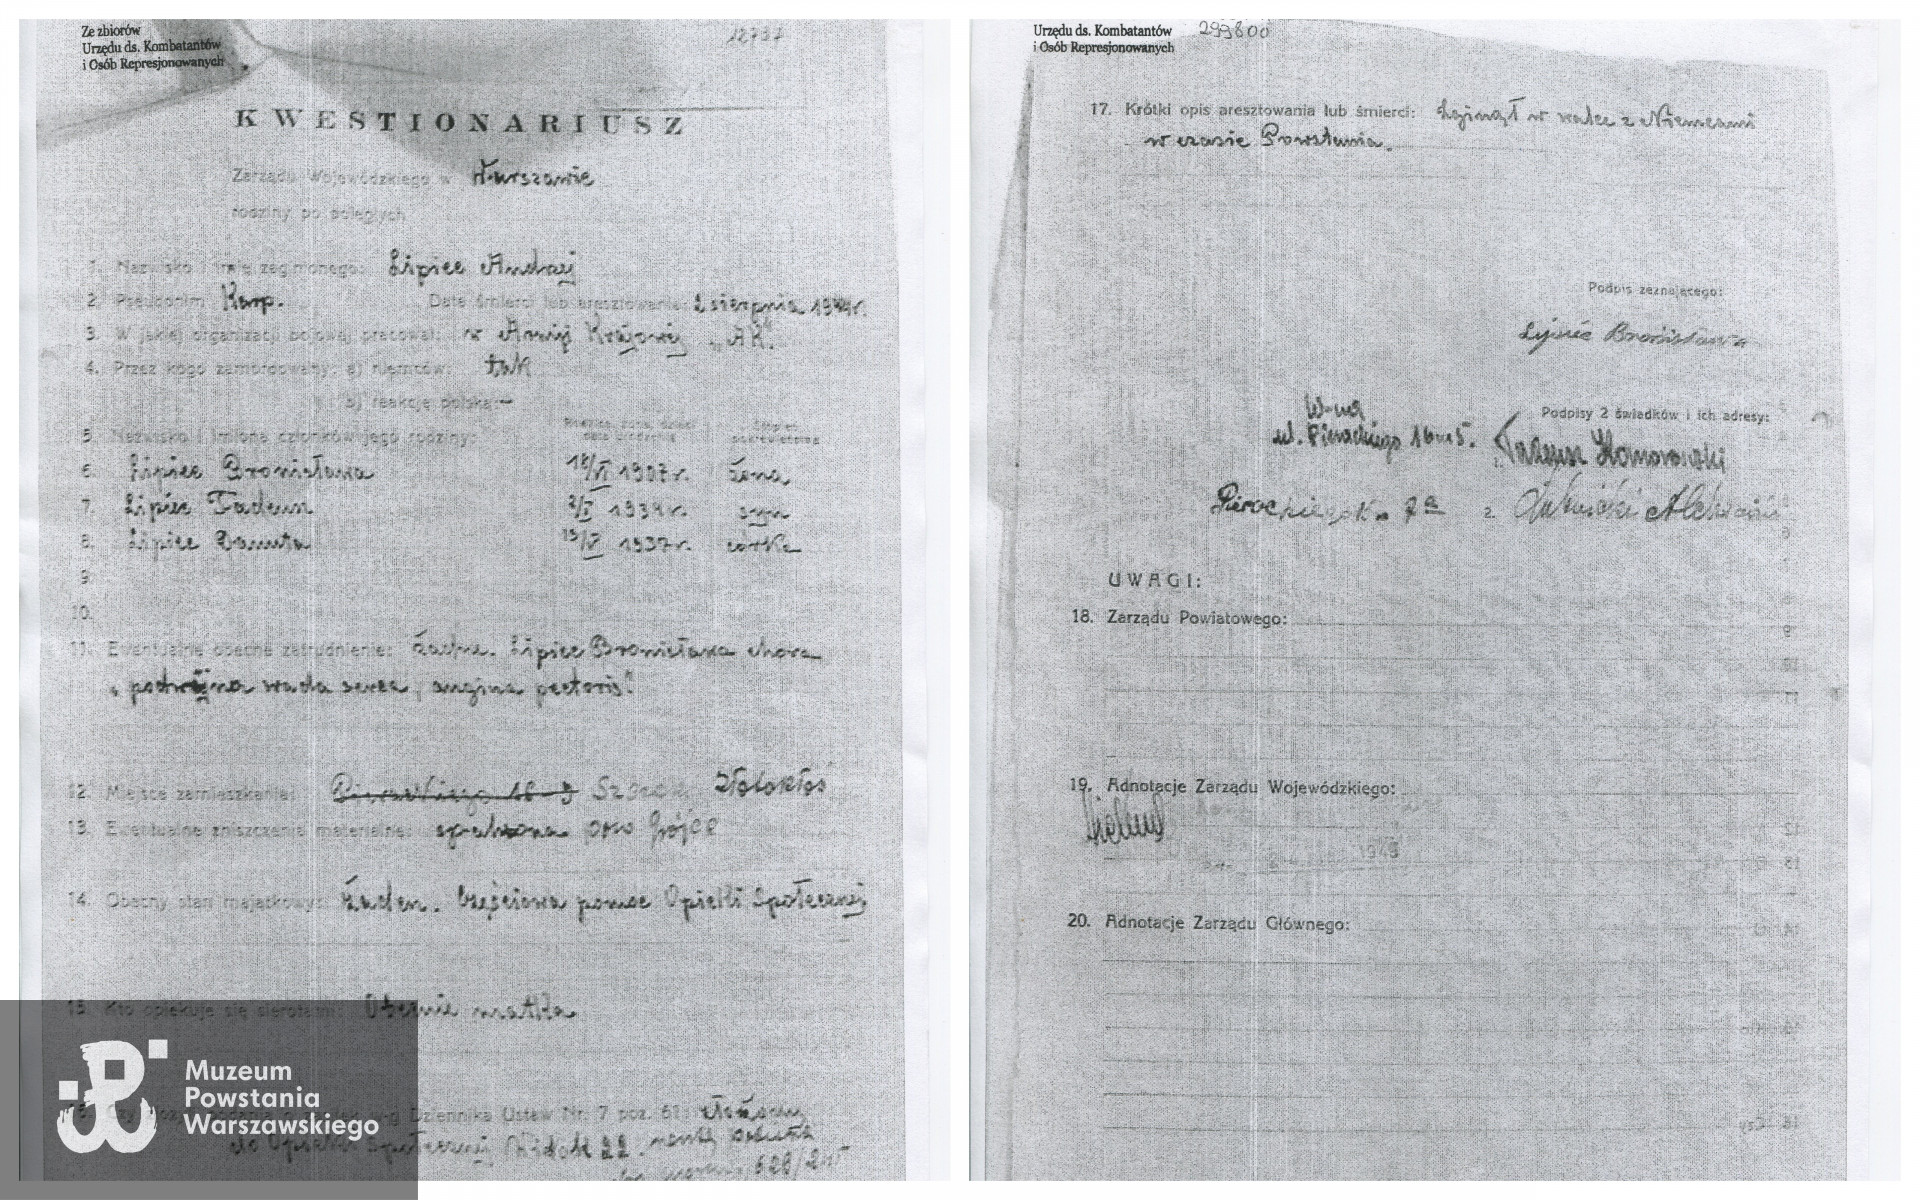 Ze zbiorów
Urzędu ds. Kombatantów
i Osób Represjonowanych
12737
KWESTIONARIUSZ
Zarządu Wojewódzkiego w Warszawie
rodziny po poległych
1. Nazwisko i imię zaginionego: Lipiec Andrzej
2. Pseudonim Karp. Data śmierci lub aresztowania: 2 sierpnia 1944r.
3. W jakiej organizacji bojowej pracował: w Armji Krajowej „AK"
4. Przez kogo zamordowany: a) niemców: tak
b) reakcję polską: —
5. Nazwisko i imiona członków jego rodziny:
6. Lipiec Bronisława 18/VI 1907r. żona
7. Lipiec Tadeusz 1934r. syn
8. Lipiec Danuta 1937r. córka
9
10.
11. Ewentualne obecne zatrudnienie: Żadne. Lipiec Bronisława chora
„podwójna wada serca, angina pectoris"
12. Miejsce zamieszkania: Pierackiego 16-5 Złotokłos
13. Ewentualne zniszczenia materialne: spalona pow Grójec
14. Obecny stan majątkowy: Żaden. Częściowa pomoc Opieki Społecznej
15. Kto opiekuje się sierotami: Obecnie matka
16. Czy Dziennika Ustaw Nr. 7 poz. 61: złożony
do Opieki Społecznej 22. rentę
Muzeum
Powstania
Warszawskiego
Urzędu ds. Kombatantów
i Osób Represjonowanych
293800
17. Krótki opis aresztowania lub śmierci: Zginął w walce z Niemcami
w czasie Powstania.
Podpis zeznającego:
Lipiec Bronisława
Podpisy 2 świadków i ich adresy:
W-wa
ul. Pierackiego 16 m 5. Tadeusz
2.
UWAGI:
18. Zarządu Powiatowego:
19. Adnotacje Zarządu Wojewódzkiego:
1949
20. Adnotacje Zarządu Głównego: